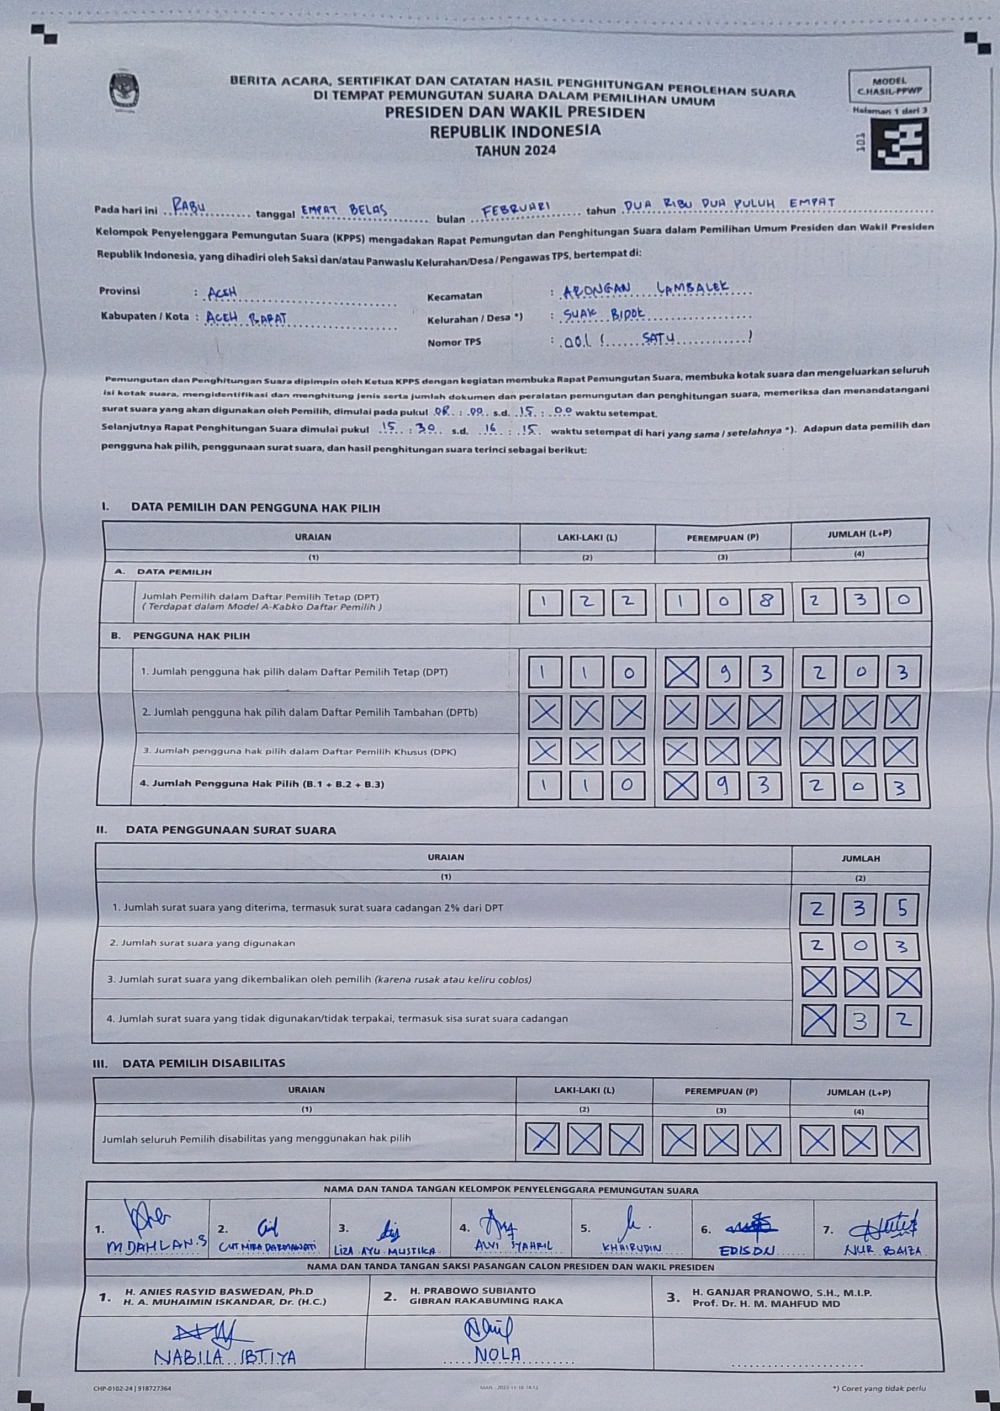 BERITA ACARA, SERTIFIKAT DAN CATATAN HASIL PENGHITUNGAN PEROLEHAN SUARA
DI TEMPAT PEMUNGUTAN SUARA DALAM PEMILIHAN UMUM
PRESIDEN DAN WAKIL PRESIDEN
REPUBLIK INDONESIA
TAHUN 2024
MODEL
C.HASIL-PPWP
Halaman 1 dari 3
101
Pada hari ini RABU tanggal EMPAT BELAS bulan FEBRUARI tahun DUA RIBU DUA PULUH EMPAT
Kelompok Penyelenggara Pemungutan Suara (KPPS) mengadakan Rapat Pemungutan dan Penghitungan Suara dalam Pemilihan Umum Presiden dan Wakil Presiden
Republik Indonesia, yang dihadiri oleh Saksi dan/atau Panwaslu Kelurahan/Desa / Pengawas TPS, bertempat di:
Provinsi : ACEH
Kecamatan : ARONGAN LAMBALEK
Kabupaten / Kota : ACEH BARAT
Kelurahan / Desa *) : SUAK BIDOK
Nomor TPS : 001 ( SATU )
Pemungutan dan Penghitungan Suara dipimpin oleh Ketua KPPS dengan kegiatan membuka Rapat Pemungutan Suara, membuka kotak suara dan mengeluarkan seluruh
isi kotak suara, mengidentifikasi dan menghitung jenis serta jumlah dokumen dan peralatan pemungutan dan penghitungan suara, memeriksa dan menandatangani
surat suara yang akan digunakan oleh Pemilih, dimulai pada pukul 08 : 00 s.d. 15 : 00 waktu setempat.
Selanjutnya Rapat Penghitungan Suara dimulai pukul 15 : 30 s.d. 16 : 15 waktu setempat di hari yang sama / setelahnya *). Adapun data pemilih dan
pengguna hak pilih, penggunaan surat suara, dan hasil penghitungan suara terinci sebagai berikut:
I. DATA PEMILIH DAN PENGGUNA HAK PILIH
URAIAN LAKI-LAKI (L) PEREMPUAN (P) JUMLAH (L+P)
(1) (2) (3) (4)
A. DATA PEMILIH
Jumlah Pemilih dalam Daftar Pemilih Tetap (DPT) 1 2 2 1 0 8 2 3 0
( Terdapat dalam Model A-Kabko Daftar Pemilih )
B. PENGGUNA HAK PILIH
1. Jumlah pengguna hak pilih dalam Daftar Pemilih Tetap (DPT) 1 1 0 X 9 3 2 0 3
2. Jumlah pengguna hak pilih dalam Daftar Pemilih Tambahan (DPTb) X X X X X X X X X
3. Jumlah pengguna hak pilih dalam Daftar Pemilih Khusus (DPK) X X X X X X X X X
4. Jumlah Pengguna Hak Pilih (B.1 + B.2 + B.3) 1 1 0 X 9 3 2 0 3
II. DATA PENGGUNAAN SURAT SUARA
URAIAN JUMLAH
(1) (2)
1. Jumlah surat suara yang diterima, termasuk surat suara cadangan 2% dari DPT 2 3 5
2. Jumlah surat suara yang digunakan 2 0 3
3. Jumlah surat suara yang dikembalikan oleh pemilih (karena rusak atau keliru coblos) X X X
4. Jumlah surat suara yang tidak digunakan/tidak terpakai, termasuk sisa surat suara cadangan X 3 2
III. DATA PEMILIH DISABILITAS
URAIAN LAKI-LAKI (L) PEREMPUAN (P) JUMLAH (L+P)
(1) (2) (3) (4)
Jumlah seluruh Pemilih disabilitas yang menggunakan hak pilih X X X X X X X X X
NAMA DAN TANDA TANGAN KELOMPOK PENYELENGGARA PEMUNGUTAN SUARA
1. 2. 3. 4. 5. 6. 7.
M DAHLAN.S CUT MIRA DARMAWATI LIZA AYU MUSTIKA ALVI SYAHRIL KHAIRUDIN EDISON NUR BAIZA
NAMA DAN TANDA TANGAN SAKSI PASANGAN CALON PRESIDEN DAN WAKIL PRESIDEN
1. H. ANIES RASYID BASWEDAN, Ph.D
H. A. MUHAIMIN ISKANDAR, Dr. (H.C.)
2. H. PRABOWO SUBIANTO
GIBRAN RAKABUMING RAKA
3. H. GANJAR PRANOWO, S.H., M.I.P.
Prof. Dr. H. M. MAHFUD MD
NABILA IBTIYA NOLA
CHP-0102-24 | 918727364
*) Coret yang tidak perlu